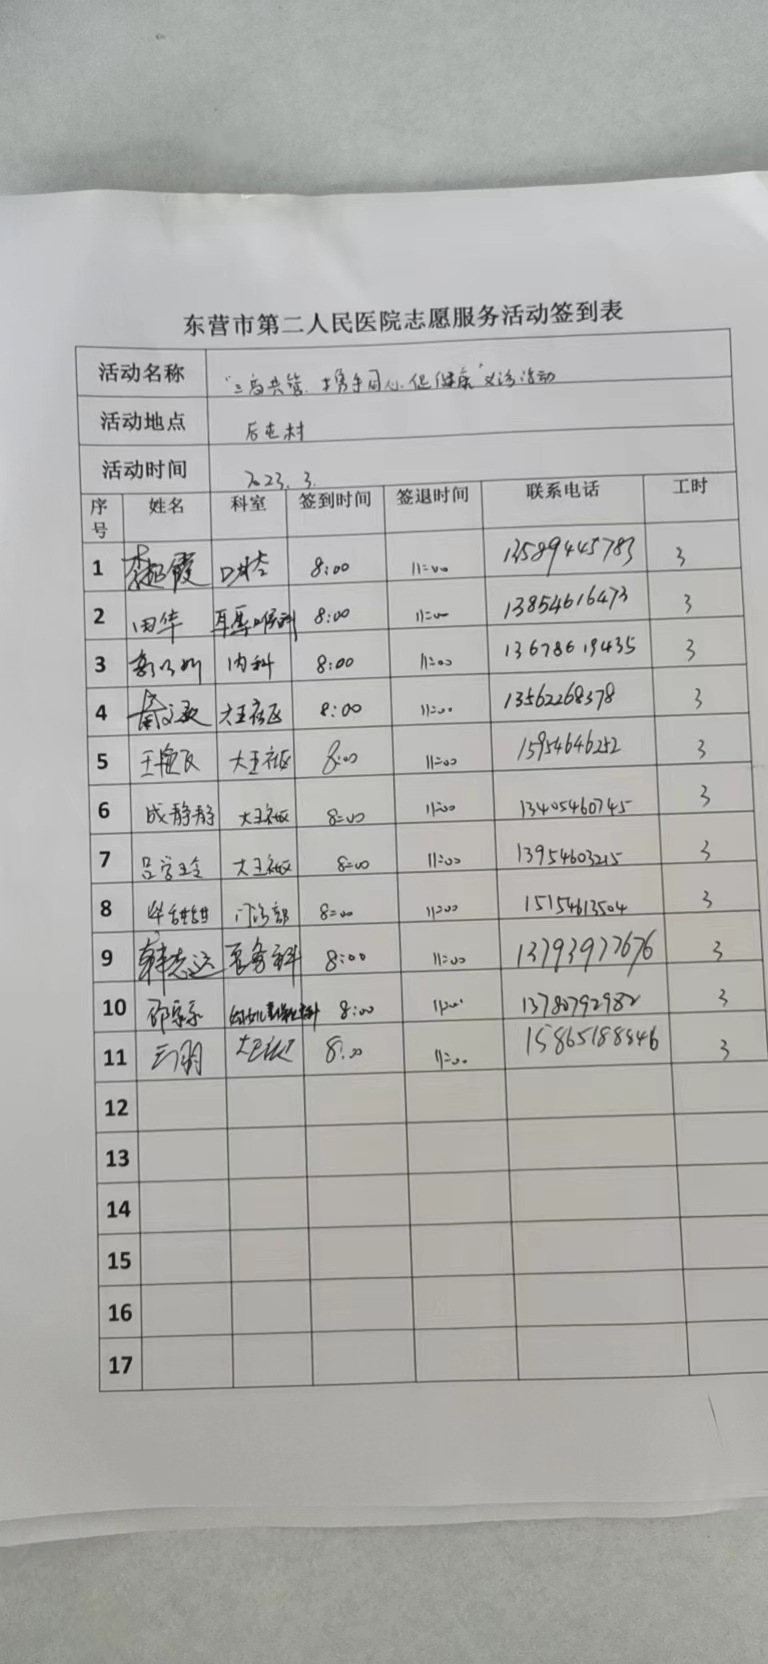 东营市第二人民医院志愿服务活动签到表
活动名称 "三高共管、携手同心 促健康"义诊活动
活动地点 后屯村
活动时间 2023.3.
序号 姓名 科室 签到时间 签退时间 联系电话 工时
1 李超霞 口腔 8:00 11:00 13589445783 3
2 田华 耳鼻喉科 8:00 11:00 13854616473 3
3 内科 8:00 11:00 13678619435 3
4 大王社区 8:00 11:00 13562268378 3
5 王艳民 大王社区 8:00 11:00 15954646252 3
6 成静静 大王社区 8:00 11:00 13405460745 3
7 吕学全 大王社区 8:00 11:00 13954603215 3
8 门诊部 8:00 11:00 15154613504 3
9 韩志远 医务科 8:00 11:00 13793977676 3
10 8:00 11:00 13780792982 3
11 大王社区 8:00 11:00 15865188846 3
12
13
14
15
16
17